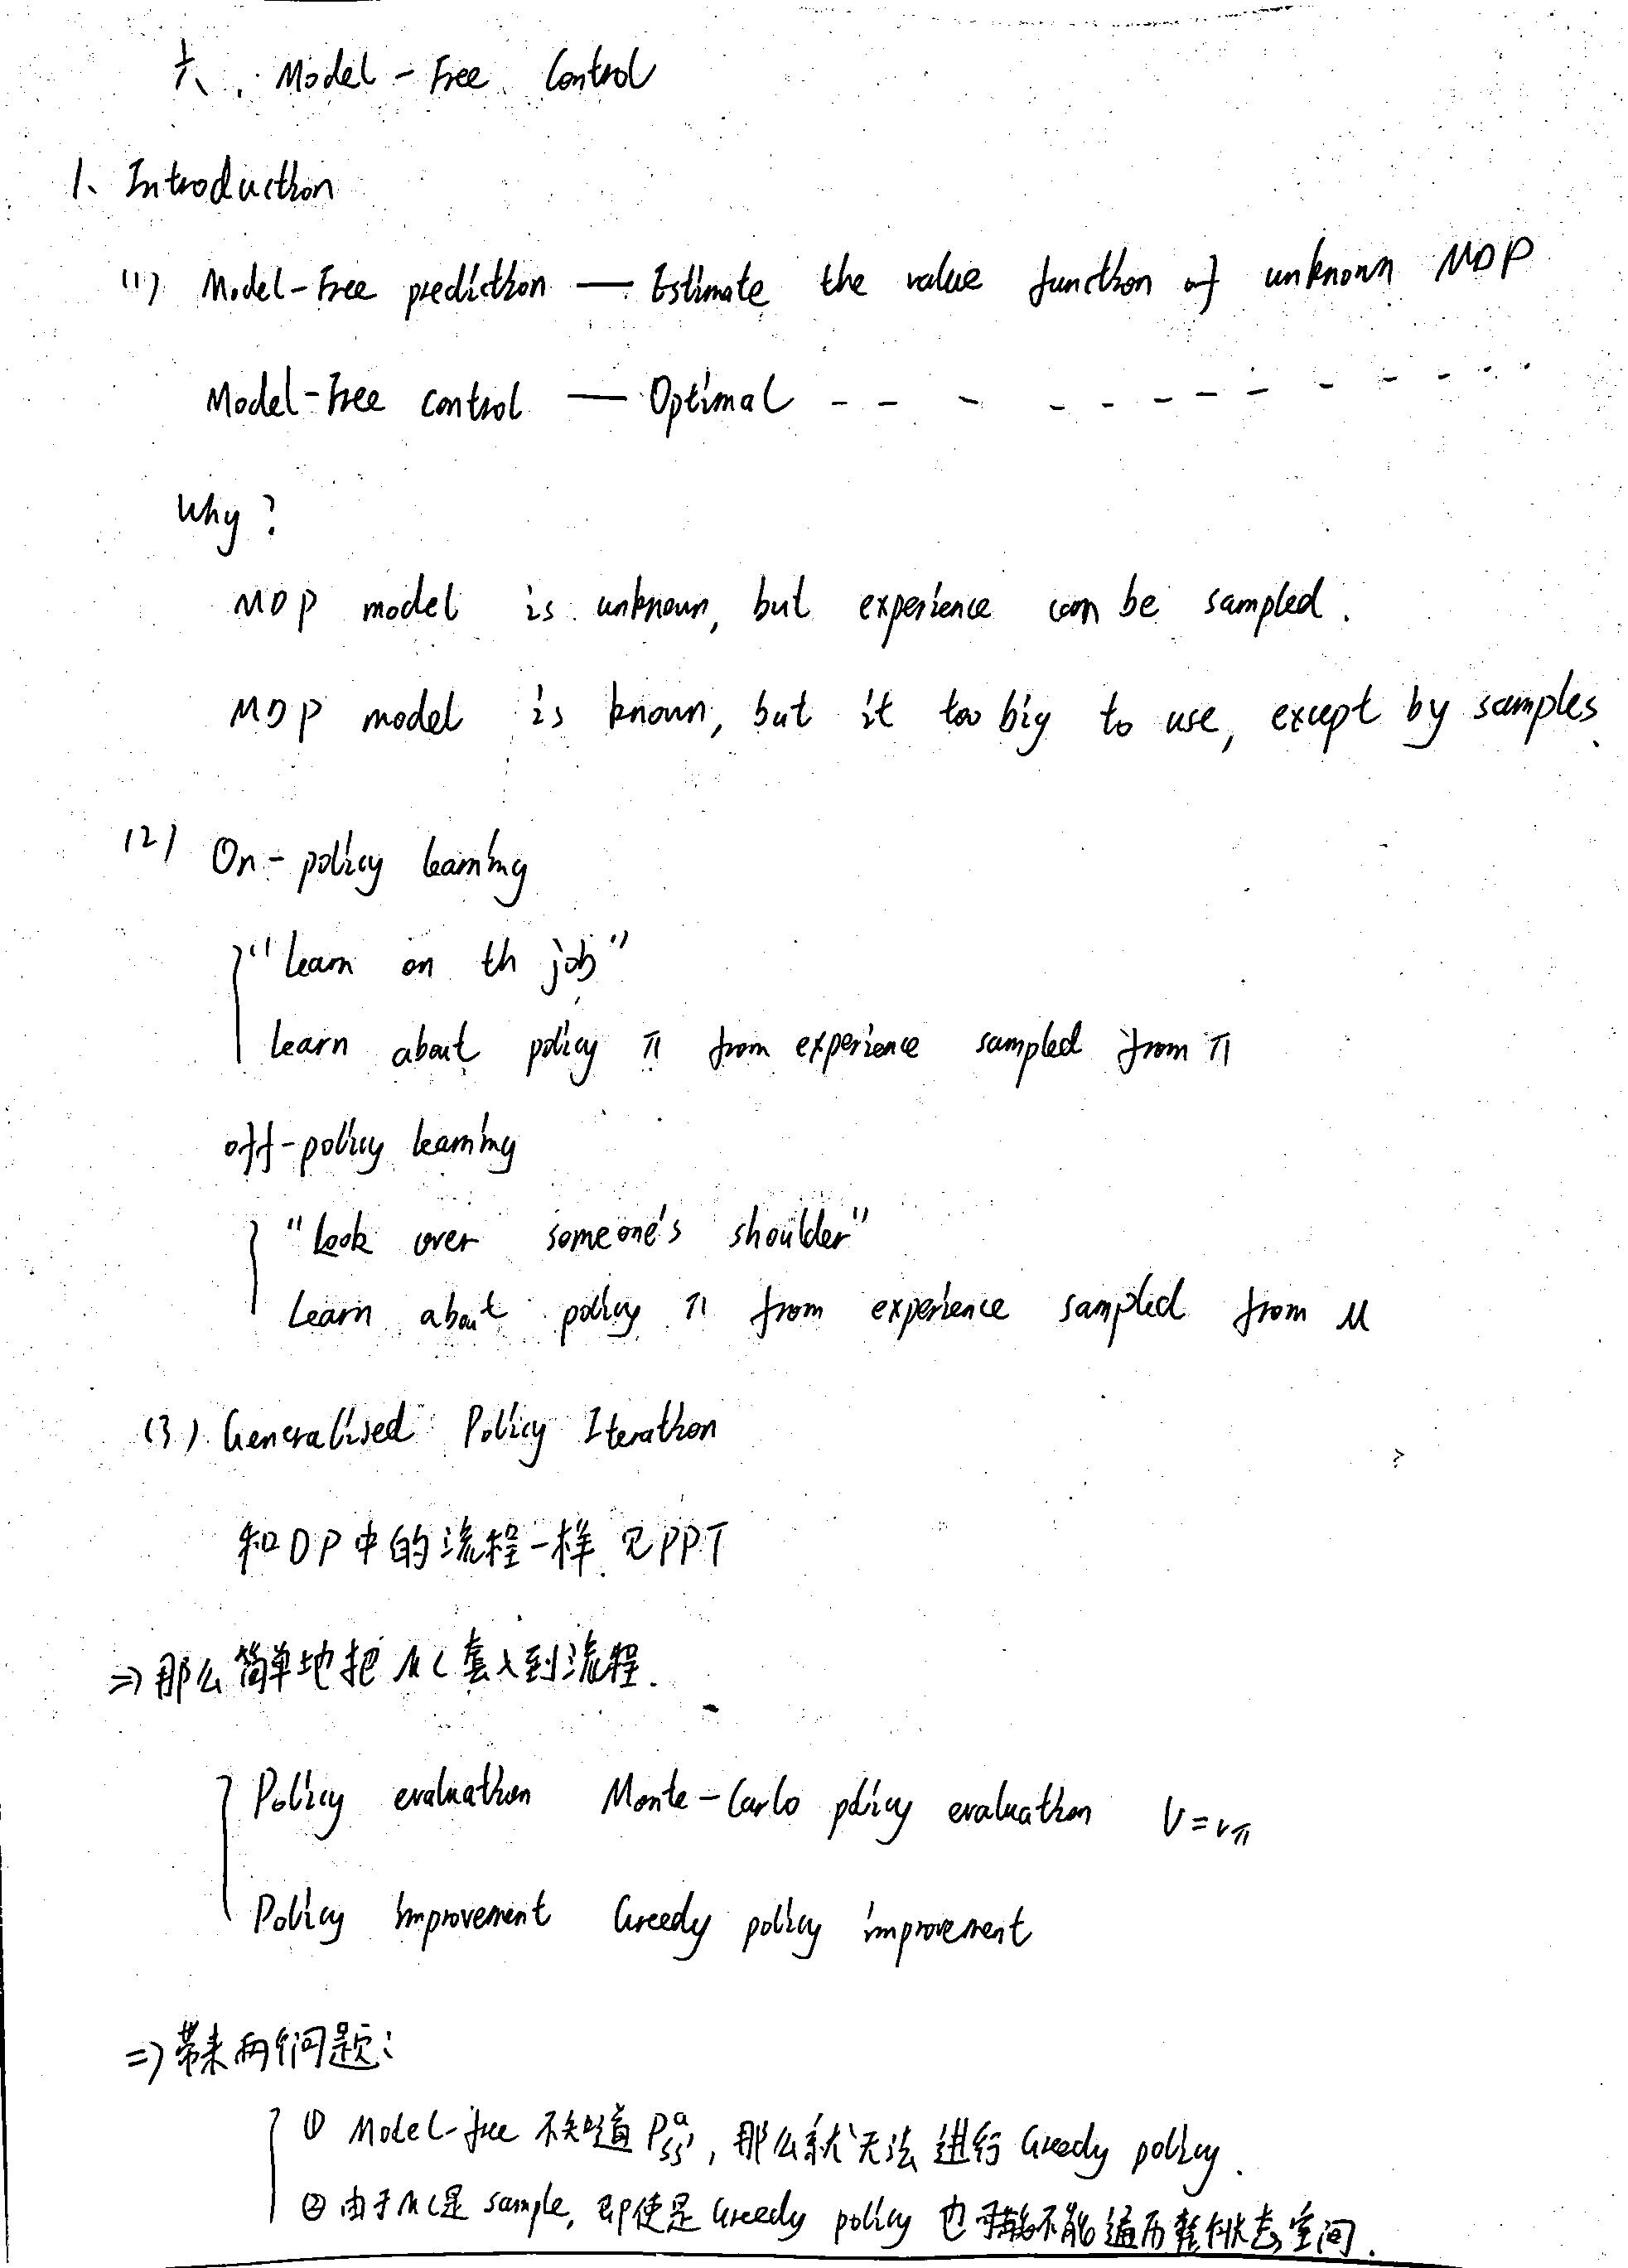 六、Model-Free Control
1、Introduction
(1) Model-Free prediction — Estimate the value function of unknown MDP
Model-Free control — Optimal - - - - - - - - - - - -
Why?
MDP model is unknown, but experience can be sampled.
MDP model is known, but it too big to use, except by samples.
(2) On-policy learning
"learn on th job"
learn about policy π from experience sampled from π
off-policy learning
"Look over someone's shoulder"
Learn about policy π from experience sampled from μ
(3) Generalised Policy Iteration
和DP中的流程一样 见PPT
⇒ 那么简单地把MC套入到流程.
Policy evaluation Monte-Carlo policy evaluation V=vπ
Policy improvement Greedy policy improvement
⇒ 带来两个问题:
① Model-free 不知道 Pᵃss', 那么就无法进行 Greedy policy.
② 由于MC是 sample, 即使是 Greedy policy 也可能不能遍历整个状态空间.